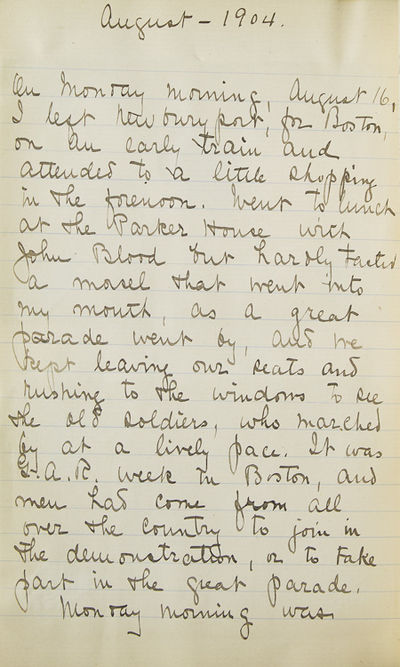 August - 1904.
On Monday morning, August 16,
I left Newburyport, for Boston,
on an early train and
attended to a little shopping
in the forenoon. Went to lunch
at the Parker House with
John Blood but hardly tasted
a mosel that went into
my mouth, as a great
parade went by, and we
kept leaving our seats and
rushing to the windows to see
the old soldiers, who marched
by at a lively pace. It was
G.A.R. week in Boston, and
men had come from all
over the country to join in
the demonstration, or to take
part in the great parade.
Monday morning was